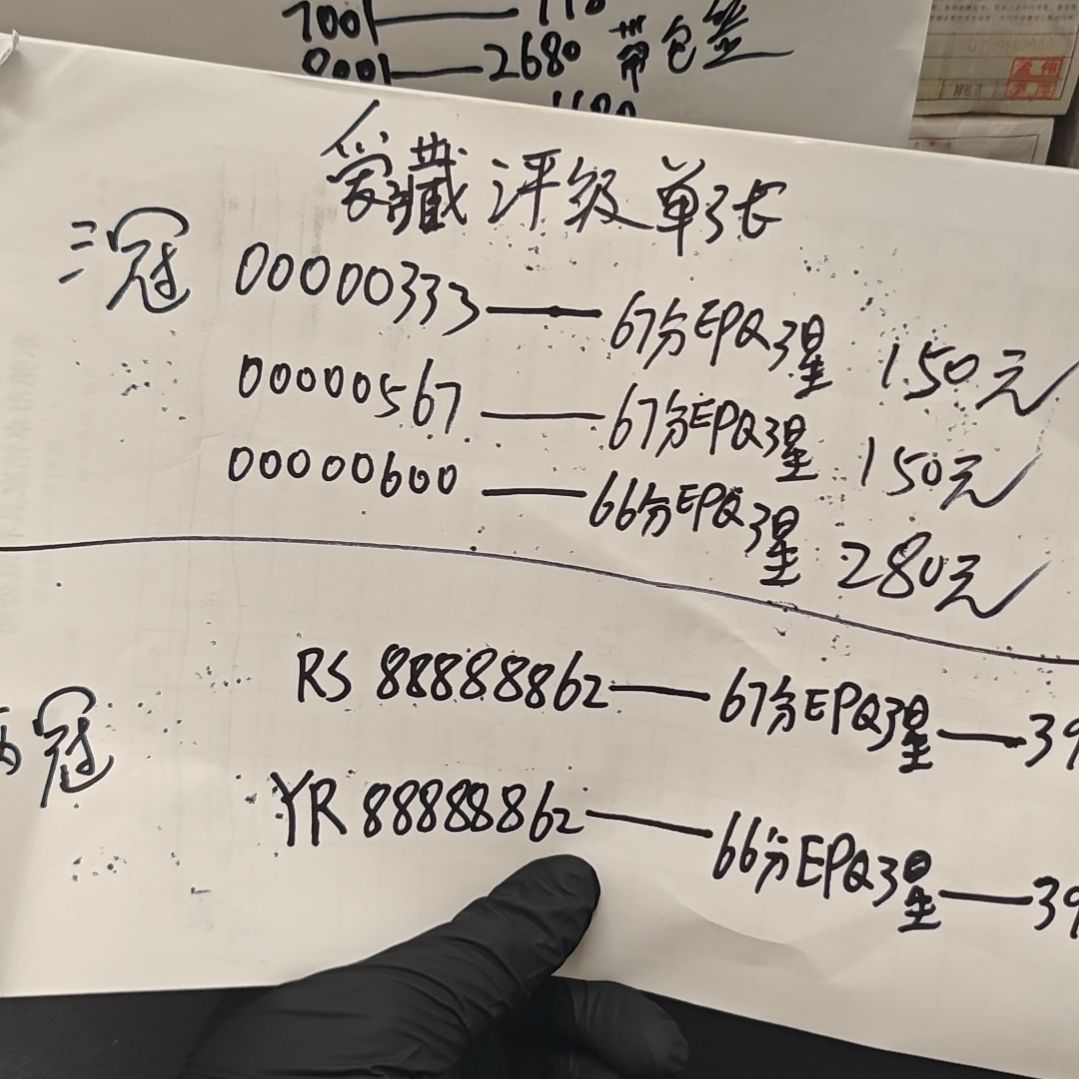 7001——118
8001——2680 带包签
1180
爱藏评级单张
三冠 00000333——67分EPQ3星 150元
00000567——67分EPQ3星 150元
00000600——66分EPQ3星 280元
两冠 RS 88888862——67分EPQ3星——39
YR 88888862——66分EPQ3星——39